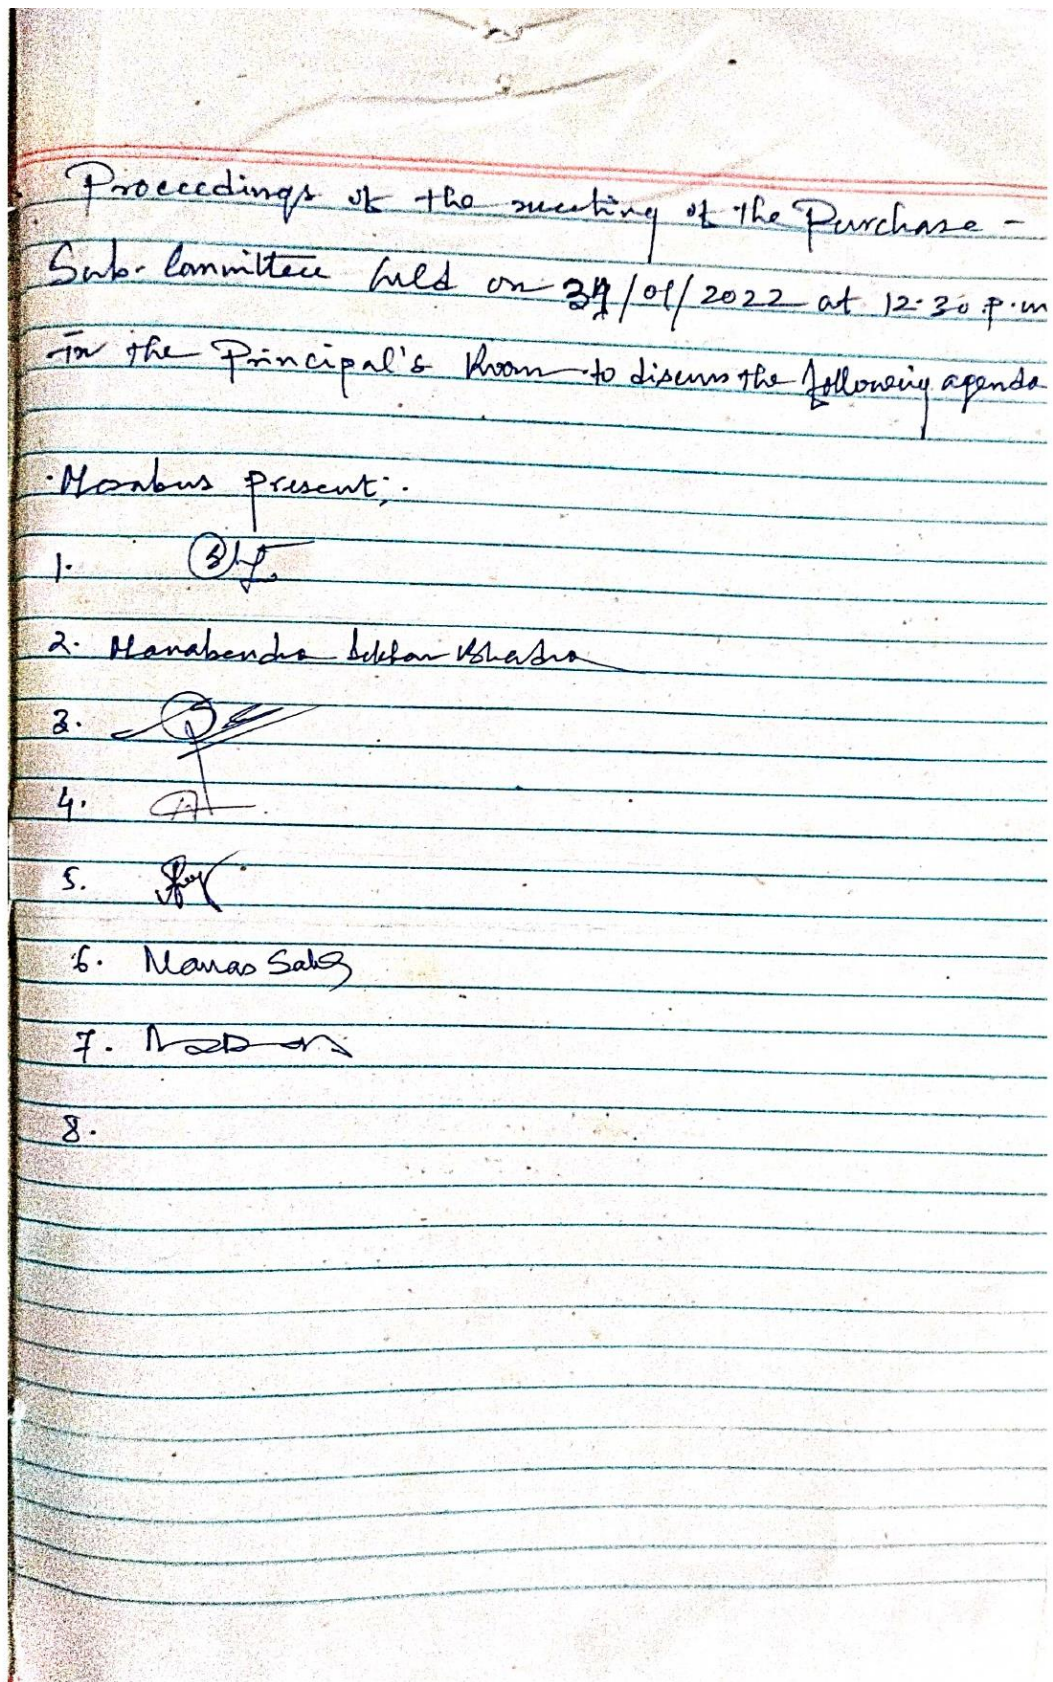 Proceedings of the meeting of the Purchase -
Sub-Committee held on /01/2022 at 12.30 p.m
In the Principal's Room to discuss the following agenda
Members present;.
1.
2. Manabendra Sekhar Bhadra
3.
4.
5.
6. Manas
7.
8.